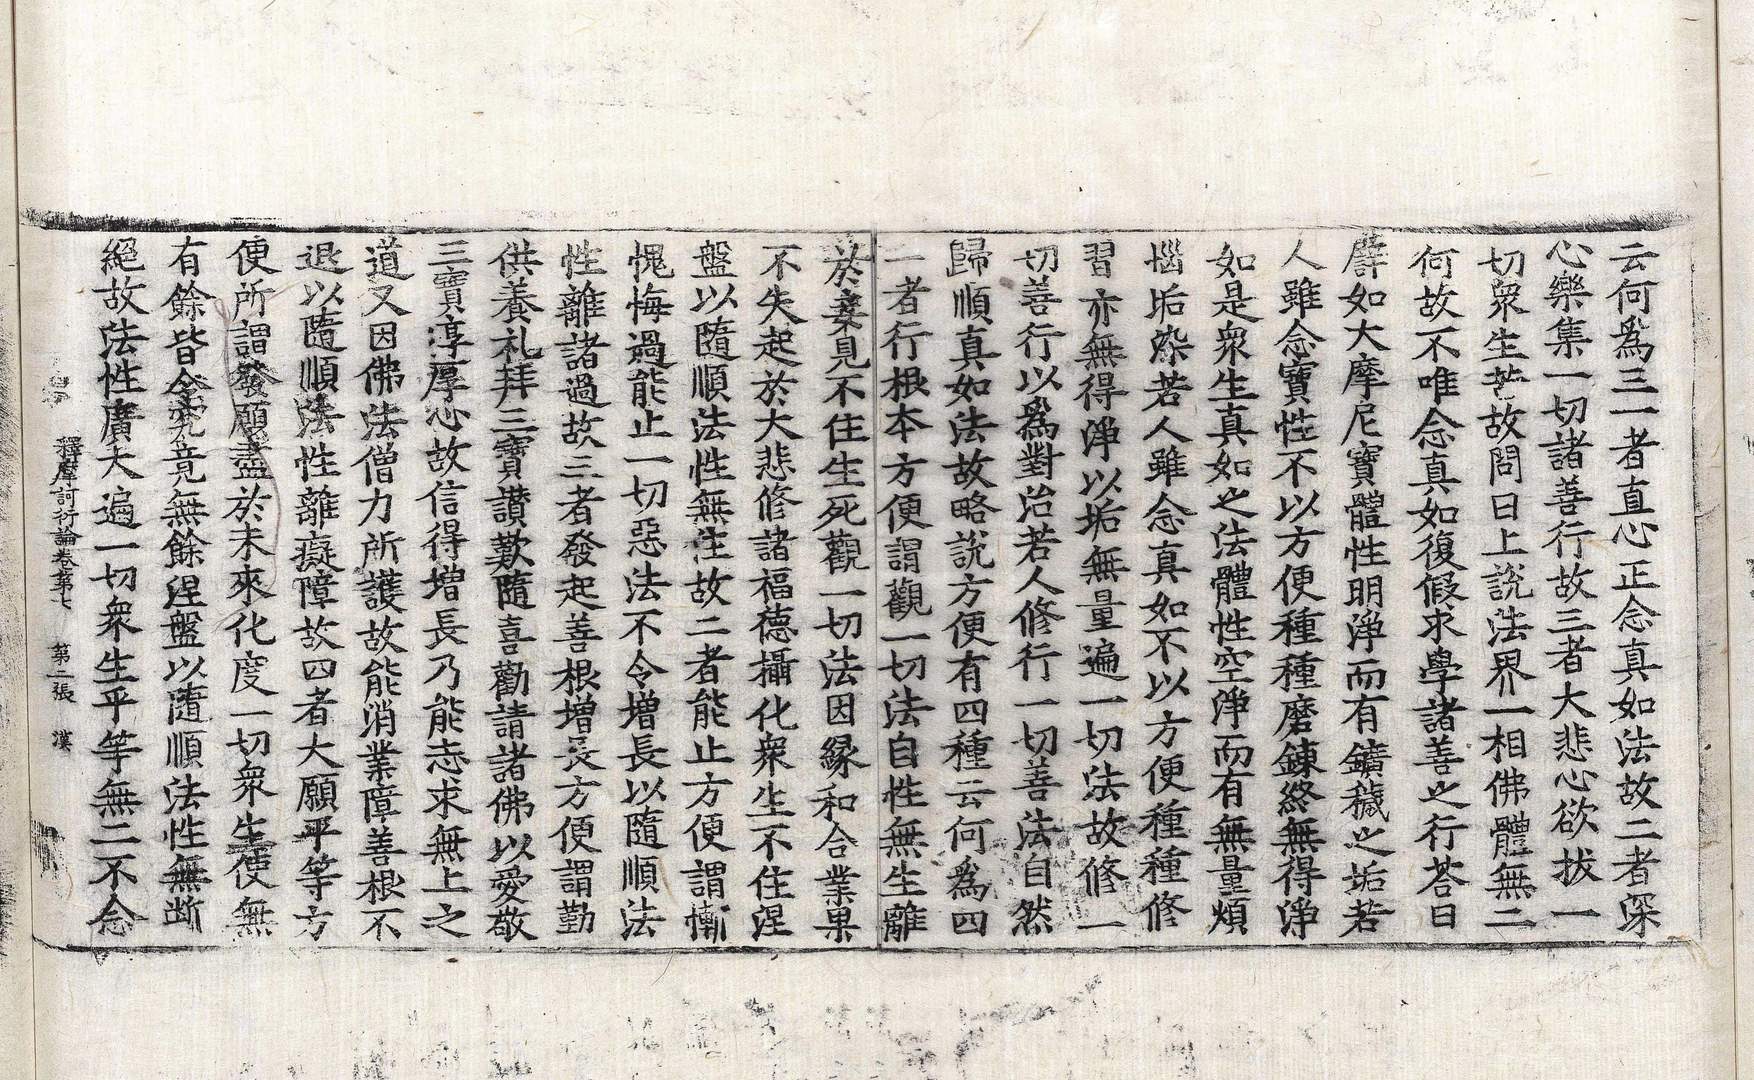 云何爲三一者直心正念真如法故二者深
心樂集一切諸善行故三者大悲心欲拔一
切衆生苦故問曰上說法界一相佛體無二
何故不唯念真如復假求學諸善之行荅曰
譬如大摩尼寶體性明淨而有鑛穢之垢若
人雖念寶性不以方便種種磨鍊終無得淨
如是衆生真如之法體性空淨而有無量煩
惱垢染若人雖念真如不以方便種種修
習亦無得淨以垢無量遍一切法故修一
切善行以爲對治若人修行一切善法自然
歸順真如法故略說方便有四種云何爲四
一者行根本方便謂觀一切法自性無生離
於妄見不住生死觀一切法因緣和合業果
不失起於大悲修諸福德攝化衆生不住涅
盤以隨順法性無住故二者能止方便謂慚
愧悔過能止一切惡法不令增長以隨順法
性離諸過故三者發起善根增長方便謂勤
供養礼拜三寶讚歎隨喜勸請諸佛以愛敬
三寶淳厚心故信得增長乃能志求無上之
道又因佛法僧力所護故能消業障善根不
退以隨順法性離癡障故四者大願平等方
便所謂發願盡於未來化度一切衆生使無
有餘皆令究竟無餘涅盤以隨順法性無斷
絕故法性廣大遍一切衆生平等無二不念
釋摩訶衍論卷第七 第二張 漢